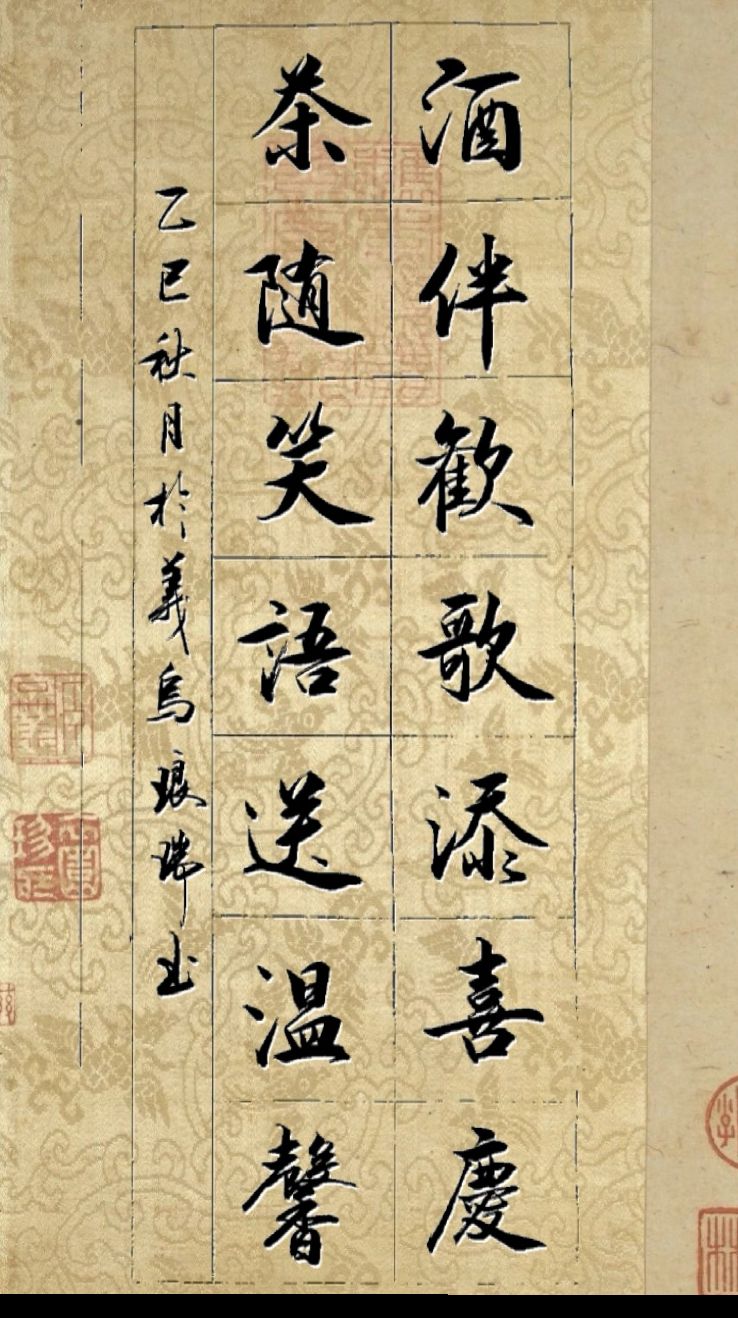 酒伴歡歌添喜慶
茶随笑語送温馨
乙巳秋月於義烏琅瑞书